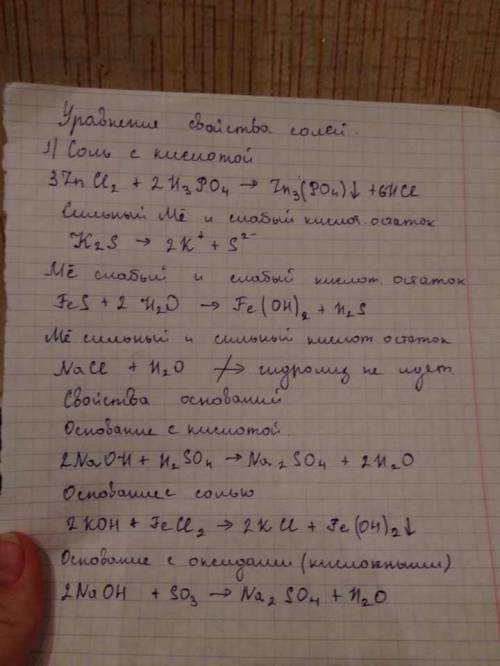 Уравнения свойства солей.
1) Соль с кислотой
3ZnCl₂ + 2H₃PO₄ → Zn₃(PO₄)↓ + 6HCl
Сильный Ме и слабый кислот. остаток
K₂S → 2K⁺ + S²⁻
Ме слабый и слабый кислот. остаток
FeS + 2 H₂O → Fe(OH)₂ + H₂S
Ме сильный и сильный кислот. остаток
NaCl + H₂O ↛ гидролиз не идет
Свойства оснований
Основание с кислотой
2NaOH + H₂SO₄ → Na₂SO₄ + 2H₂O
Основание с солью
2KOH + FeCl₂ → 2KCl + Fe(OH)₂↓
Основание с оксидами (кислотными)
2NaOH + SO₃ → Na₂SO₄ + H₂O